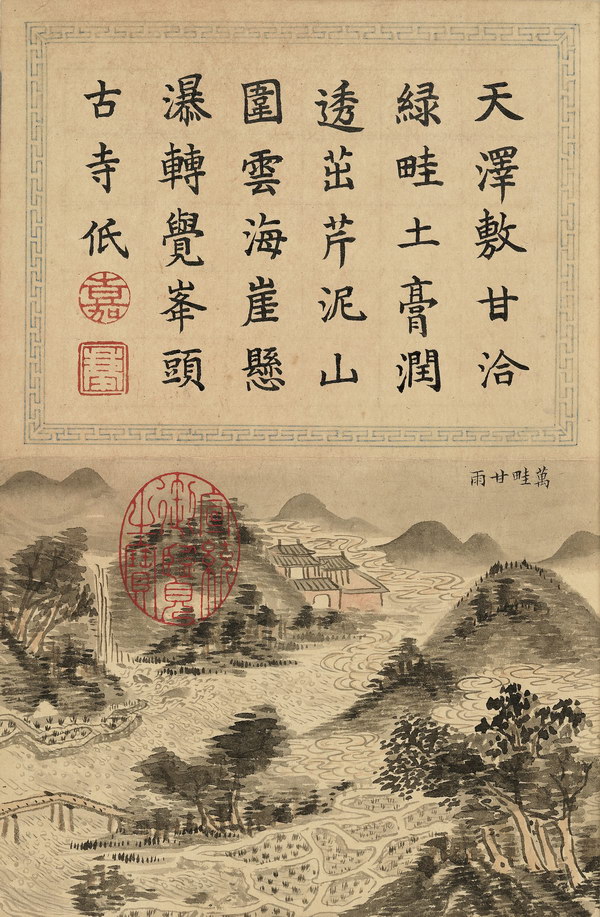 天澤敷甘洽
緑畦土膏潤
透茁芹泥山
圍雲海崖懸
瀑轉覺峯頭
古寺低
嘉
萬畦甘雨
宣統御覽之寶